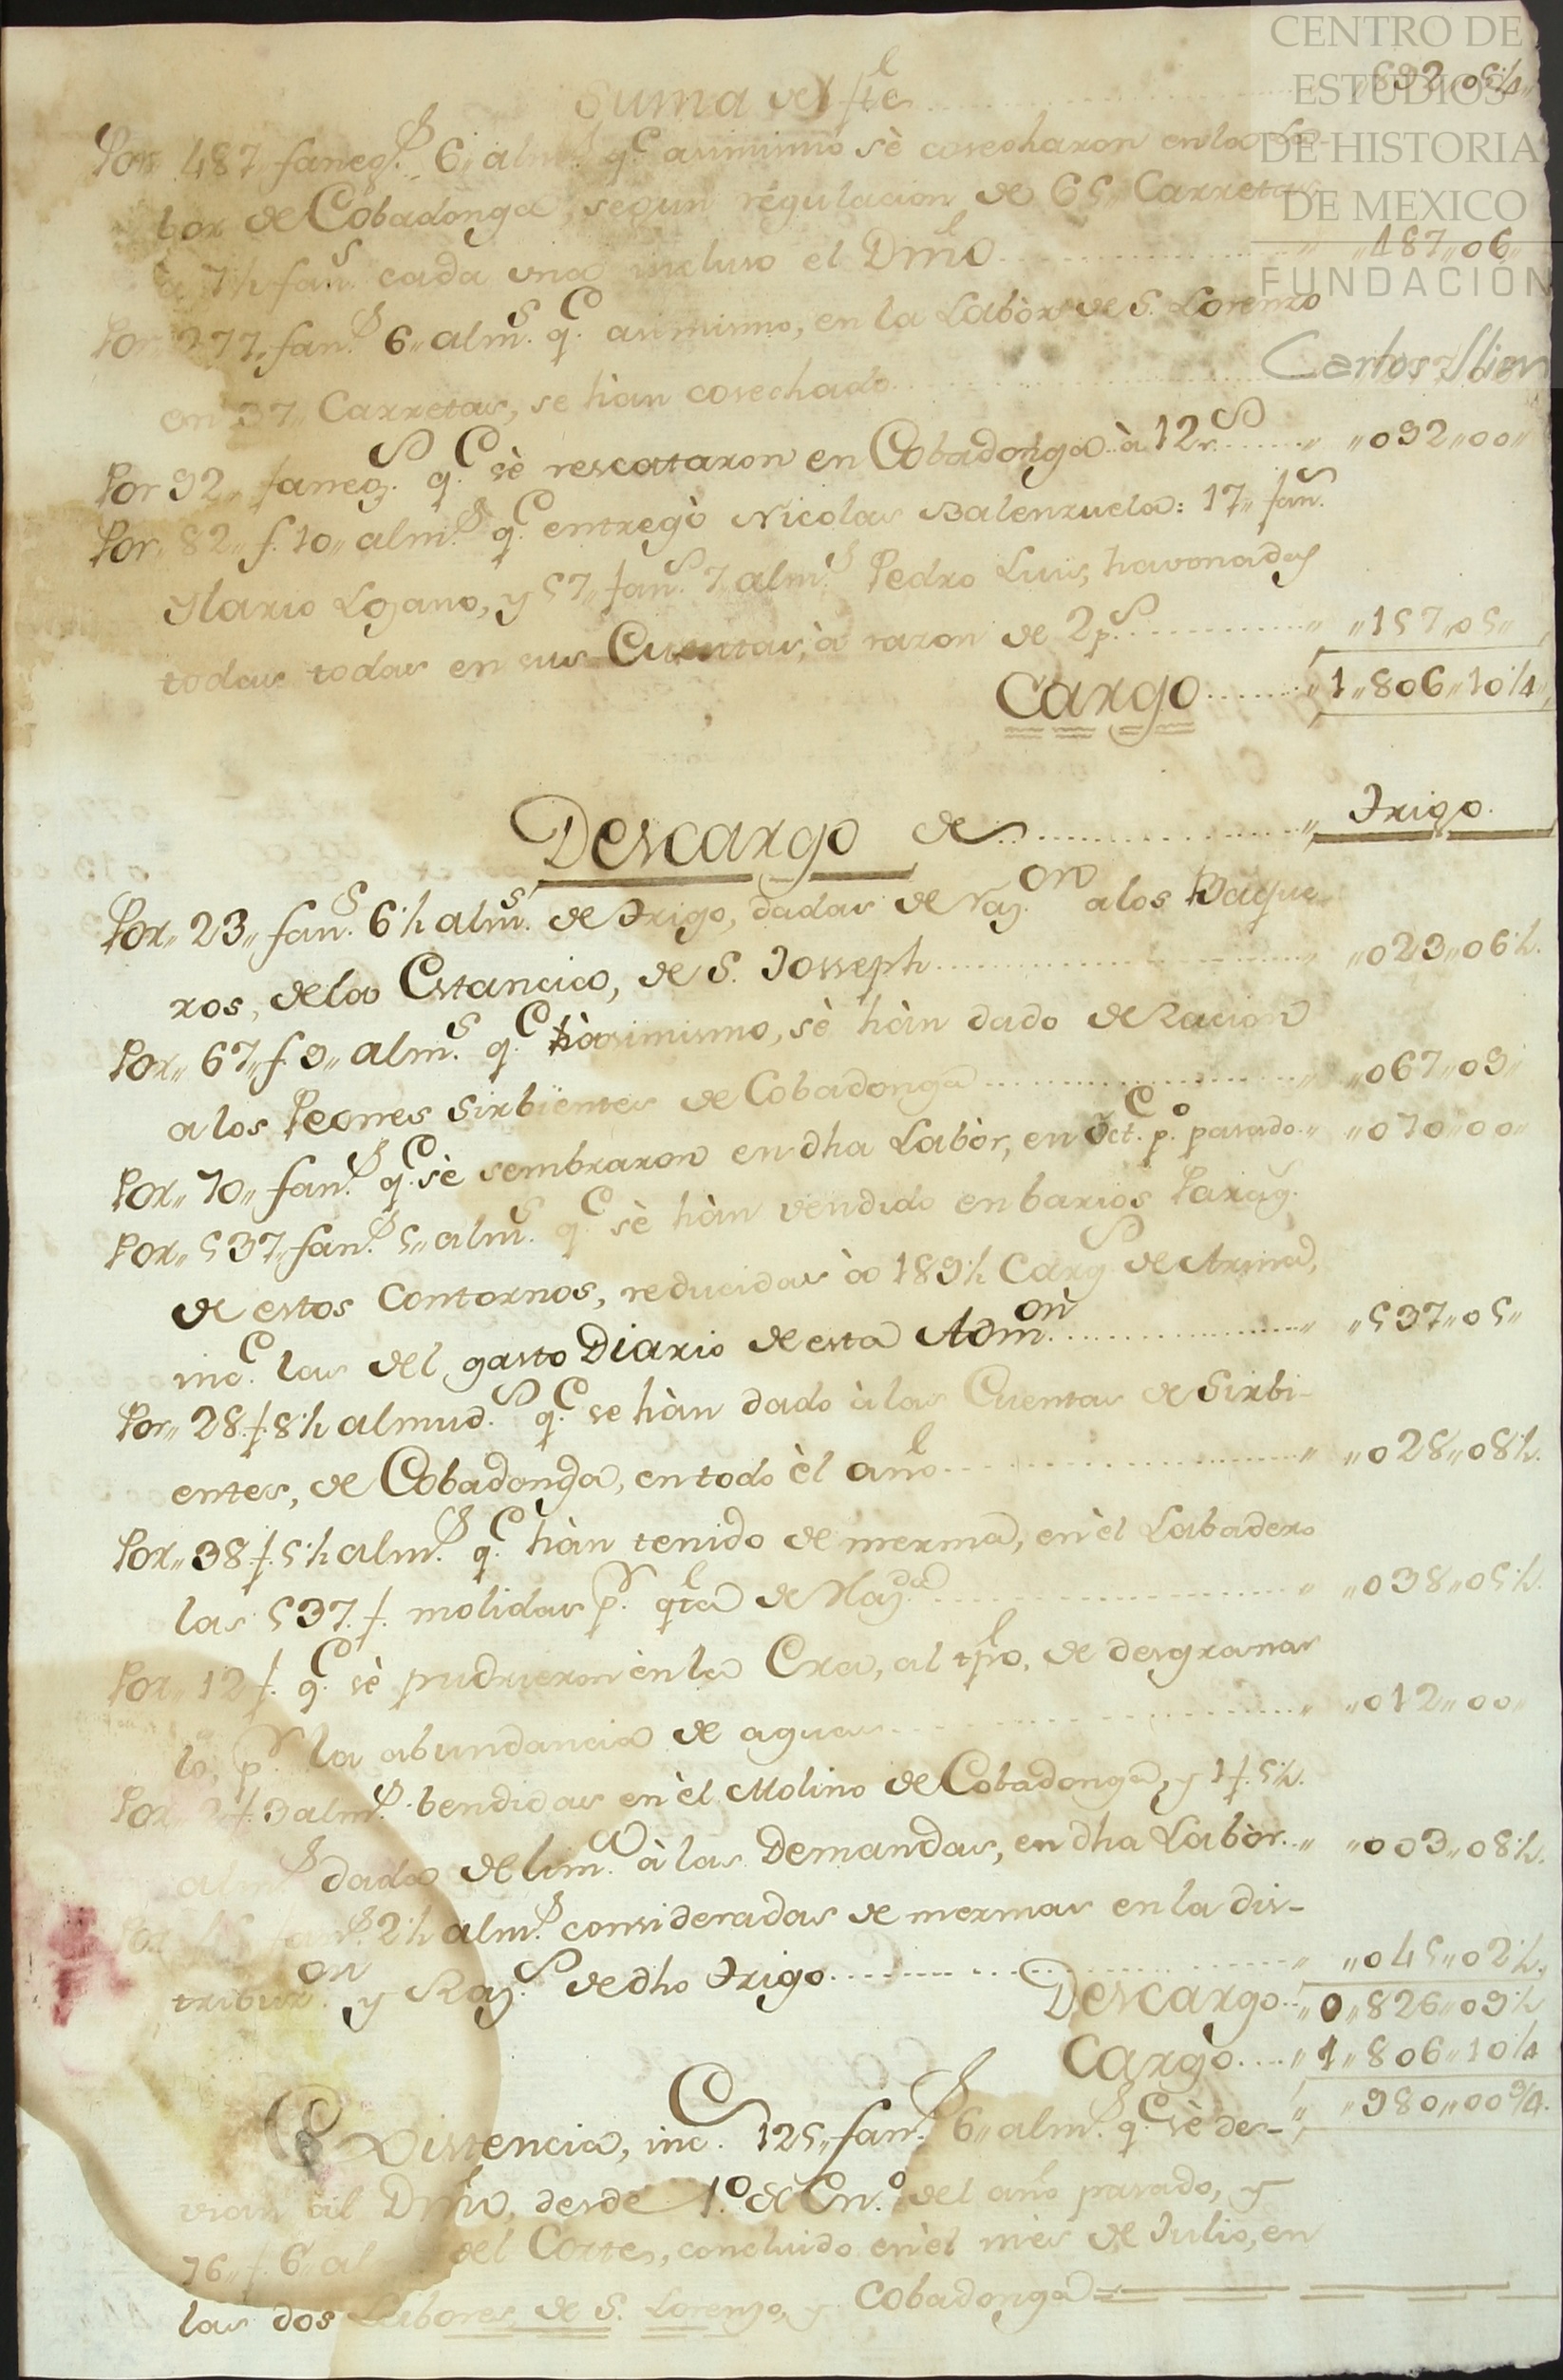 CENTRO DE
ESTUDIOS
DE HISTORIA
DE MEXICO
FUNDACIÓN
Carlos Slim
Suma del fte
Por 487,, faneg.s 6,, alm.s q.e asimismo sè cosecharon en la La-
bor de Cobadonga, segun regulacion de 65,, Carretas
à 7½ fan.s cada una incluso el Dmõ ,,487,,06,,
Por 277,, fan.s 6,, alm.s q.e asimismo, en la Labòr de S. Lorenzo
en 37,, Carretas, se hàn cosechado
Por 92,, faneg.s q.e sè rescataron en Cobadonga à 12 r.s ,,092,,00,,
Por 82,, f. 10,, alm.s q.e entregò Nicolas Balenzuela: 17,, fan.s
Ylario Lozano, y 57,, fan.s 7 alm.s Pedro Luis, havonadas
todas todas en sus Cuentas, à razon de 2 p.s ,,157,,05,,
Cargo ,,1,,806,,10¼,,
Descargo de Trigo.
Por,, 23,, fan.s 6½ alm.s de Trigo, dadas de raz.on a los Baque-
ros, de la Estancia, de S. Josseph ,,023,,06½.
Por,, 67,, f 9,, alm.s q.e hàsimismo, sè hàn dado de Racion
a los Peones Sirbientes de Cobadonga ,,067,,09,,
Por,, 70,, fan.s q.e sè sembraron en dha Labòr, en Oct.e p.o pasado ,,070,,00,,
Por,, 537,, fan.s 5,, alm.s q.e sè hàn vendido en barios Parag.s
de estos Contornos, reducidas à 189½ Carg.s de Arina,
inc.e las del gasto Diario de esta Adm.on ,,537,,05,,
Por,, 28 f. 8½ almud.s q.e se hàn dado à las Cuentas de Sirbi-
entes, de Cobadonga, en todo èl año ,,028,,08½.
Por,, 38 f. 5½ alm.s q.e hàn tenido de merma, en èl Labadero
las 537. f. molidas p.r qta de Haz.da ,,038,,05½.
Por,, 12 f. q.e sè pudrieron èn la Era, al tpo, de desgranar
lo, p.r la abundancia de aguas ,,012,,00,,
Por 2 f. 3 alm.s bendidas en èl Molino de Cobadonga, y 1 f. 5½.
alm.s dadas de lim.a à las Demandas, en dha Labòr. ,,003,,08½.
Por fan.s 2½ alm.s consideradas de mermas en la dis-
tribus.on y Raz.s de dho Trigo ,,045,,02½.
Descargo ,,0,,826,,09½
Cargo ,,1,,806,,10¼
,,980,,00¾.
Existencia, inc.e 125,, fan.s 6,, alm.s q.e sè de-
vian al Dmõ, desde 1.o de En.o del año pasado, y
76,, f. 6 al del Corte, concluido en èl mès de Julio, en
las dos Labores, de S. Lorenzo, y Cobadonga